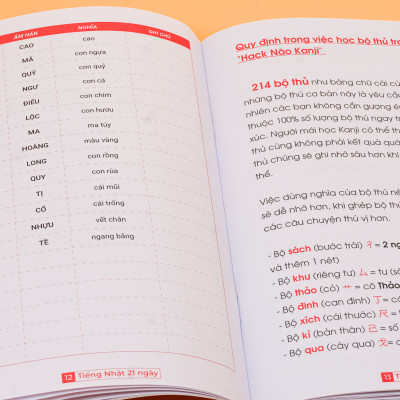 ÂM HÁN NGHĨA GHI CHÚ
CAO cao
MÃ con ngựa
QUỶ con quỷ
NGƯ con cá
ĐIỂU con chim
LỘC con hươu
MA ma túy
HOÀNG màu vàng
LONG con rồng
QUY con rùa
TỊ cái mũi
CỔ cái trống
NHỰU vết chân
TỀ ngang bằng
12 Tiếng Nhật 21 ngày
Quy định trong việc học bộ thủ
"Hack Não Kanji"
214 bộ thủ như bảng chữ cái
những bộ thủ cơ bản này là yêu
nhiên các bạn không cần gượng
thuộc 100% số lượng bộ thủ ngay
xúc. Người mới học Kanji có thể
thủ cũng không phải kết quả
thủ chúng sẽ ghi nhớ sâu hơn khi
thể.
Việc dùng nghĩa của bộ thủ
sẽ dễ nhớ hơn, khi ghép bộ thủ
các câu chuyện thú vị hơn.
- Bộ sách (bước trái) 彳 = 2
và thêm 1 nét)
- Bộ khư (riêng tư) 厶 = tư
- Bộ thảo (cỏ) 艹 = cô Thảo
- Bộ đinh (can đinh) 丁 =
- Bộ xích (cái thước) 尺 =
- Bộ kỉ (bản thân) 己 = số
- Bộ qua (cây qua) 戈 =
13